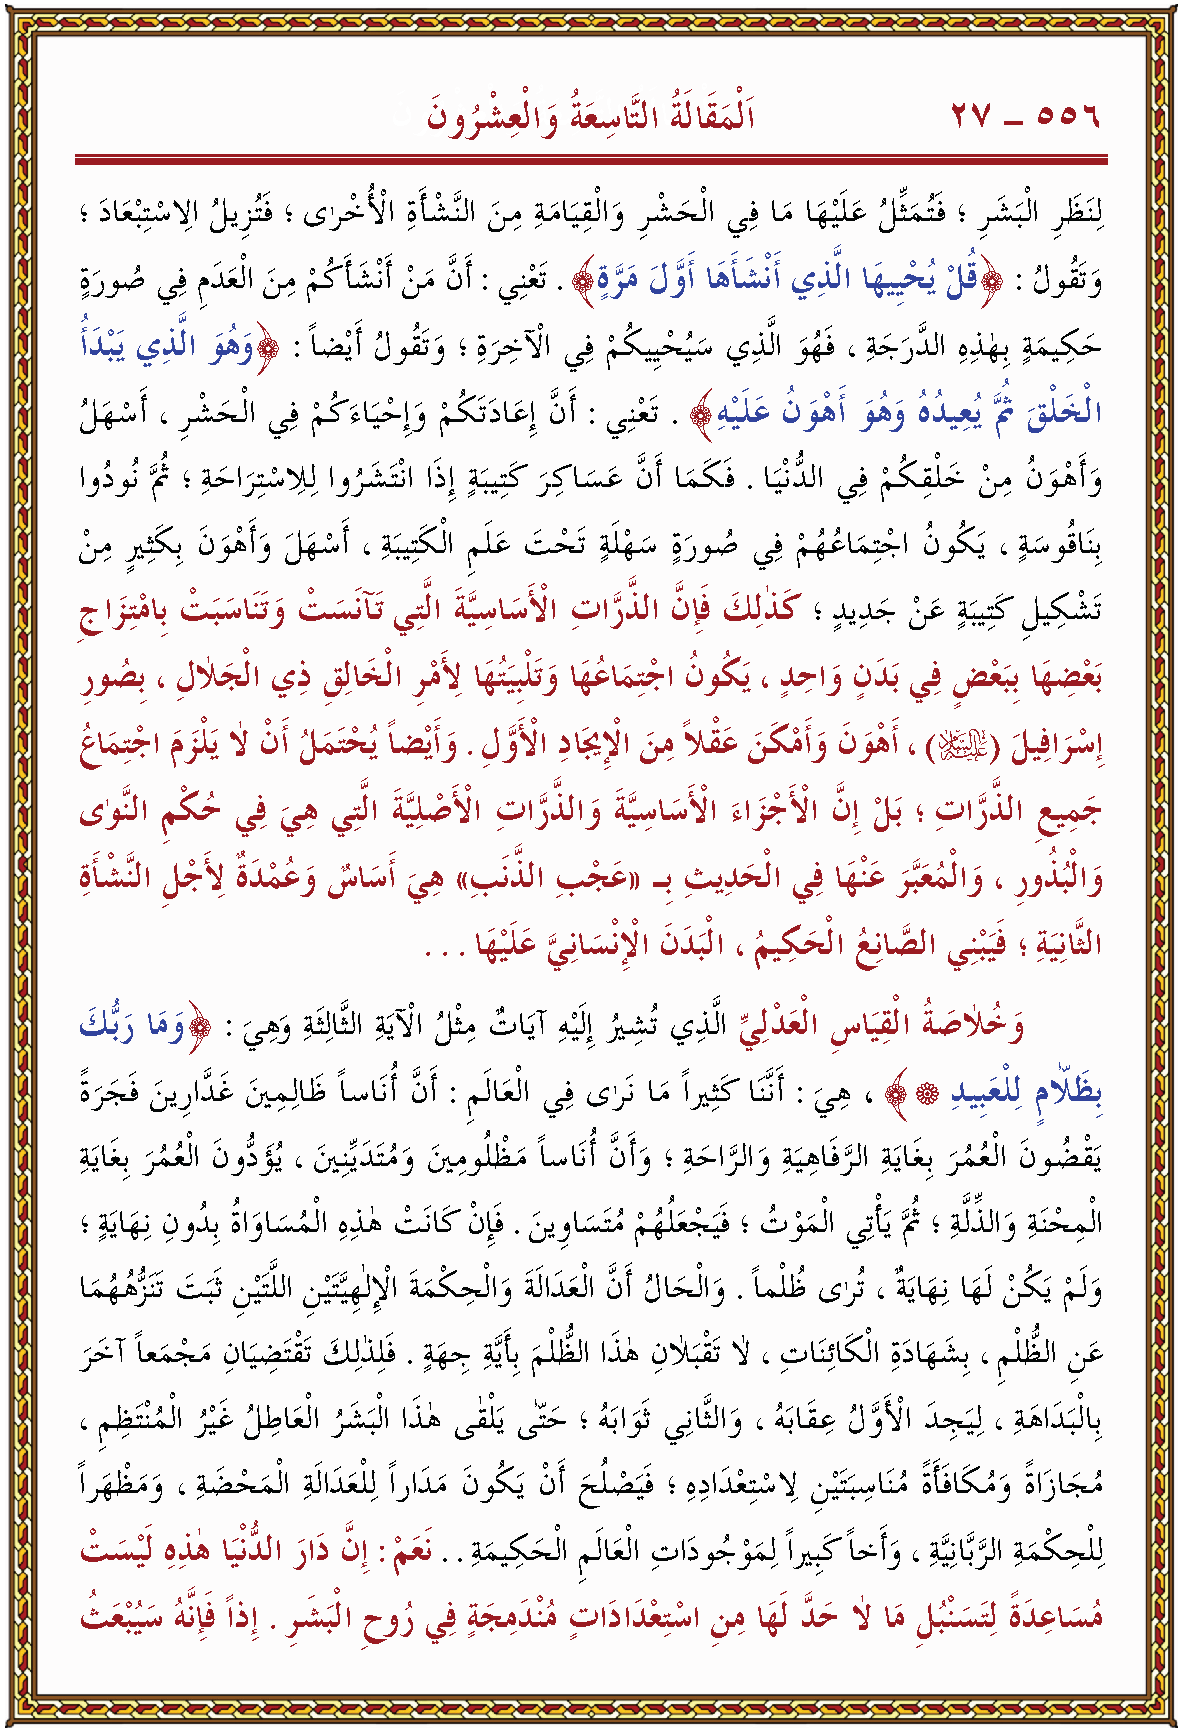 ٥٥٦ ـ ٢٧ اَلْمَقَالَةُ التَّاسِعَةُ وَالْعِشْرُونَ
لِنَظَرِ الْبَشَرِ ؛ فَتُمَثِّلُ عَلَيْهَا مَا فِي الْحَشْرِ وَالْقِيَامَةِ مِنَ النَّشْأَةِ الْأُخْرٰى ؛ فَتُزِيلُ الِاسْتِبْعَادَ ؛
وَتَقُولُ : ﴿قُلْ يُحْيِيهَا الَّذِي أَنْشَأَهَا أَوَّلَ مَرَّةٍ﴾ . تَعْنِي : أَنَّ مَنْ أَنْشَأَكُمْ مِنَ الْعَدَمِ فِي صُورَةٍ
حَكِيمَةٍ بِهٰذِهِ الدَّرَجَةِ ، فَهُوَ الَّذِي سَيُحْيِيكُمْ فِي الْآخِرَةِ ؛ وَتَقُولُ أَيْضاً : ﴿وَهُوَ الَّذِي يَبْدَأُ
الْخَلْقَ ثُمَّ يُعِيدُهُ وَهُوَ أَهْوَنُ عَلَيْهِ﴾ . تَعْنِي : أَنَّ إِعَادَتَكُمْ وَإِحْيَاءَكُمْ فِي الْحَشْرِ ، أَسْهَلُ
وَأَهْوَنُ مِنْ خَلْقِكُمْ فِي الدُّنْيَا . فَكَمَا أَنَّ عَسَاكِرَ كَتِيبَةٍ إِذَا انْتَشَرُوا لِلِاسْتِرَاحَةِ ؛ ثُمَّ نُودُوا
بِنَاقُوسَةٍ ، يَكُونُ اجْتِمَاعُهُمْ فِي صُورَةٍ سَهْلَةٍ تَحْتَ عَلَمِ الْكَتِيبَةِ ، أَسْهَلَ وَأَهْوَنَ بِكَثِيرٍ مِنْ
تَشْكِيلِ كَتِيبَةٍ عَنْ جَدِيدٍ ؛ كَذٰلِكَ فَإِنَّ الذَّرَّاتِ الْأَسَاسِيَّةَ الَّتِي تَآنَسَتْ وَتَنَاسَبَتْ بِامْتِزَاجِ
بَعْضِهَا بِبَعْضٍ فِي بَدَنٍ وَاحِدٍ ، يَكُونُ اجْتِمَاعُهَا وَتَلْبِيَتُهَا لِأَمْرِ الْخَالِقِ ذِي الْجَلَالِ ، بِصُورِ
إِسْرَافِيلَ (عليه السلام) ، أَهْوَنَ وَأَمْكَنَ عَقْلاً مِنَ الْإِيجَادِ الْأَوَّلِ . وَأَيْضاً يُحْتَمَلُ أَنْ لَا يَلْزَمَ اجْتِمَاعُ
جَمِيعِ الذَّرَّاتِ ؛ بَلْ إِنَّ الْأَجْزَاءَ الْأَسَاسِيَّةَ وَالذَّرَّاتِ الْأَصْلِيَّةَ الَّتِي هِيَ فِي حُكْمِ النَّوٰى
وَالْبُذُورِ ، وَالْمُعَبَّرَ عَنْهَا فِي الْحَدِيثِ بِـ «عَجْبِ الذَّنَبِ» هِيَ أَسَاسٌ وَعُمْدَةٌ لِأَجْلِ النَّشْأَةِ
الثَّانِيَةِ ؛ فَيَبْنِي الصَّانِعُ الْحَكِيمُ ، الْبَدَنَ الْإِنْسَانِيَّ عَلَيْهَا . . .
وَخُلَاصَةُ الْقِيَاسِ الْعَدْلِيِّ الَّذِي تُشِيرُ إِلَيْهِ آيَاتٌ مِثْلُ الْآيَةِ الثَّالِثَةِ وَهِيَ : ﴿وَمَا رَبُّكَ
بِظَلَّامٍ لِلْعَبِيدِ ۞﴾ ، هِيَ : أَنَّنَا كَثِيراً مَا نَرٰى فِي الْعَالَمِ : أَنَّ أُنَاساً ظَالِمِينَ غَدَّارِينَ فَجَرَةً
يَقْضُونَ الْعُمُرَ بِغَايَةِ الرَّفَاهِيَةِ وَالرَّاحَةِ ؛ وَأَنَّ أُنَاساً مَظْلُومِينَ وَمُتَدَيِّنِينَ ، يُؤَدُّونَ الْعُمُرَ بِغَايَةِ
الْمِحْنَةِ وَالذِّلَّةِ ؛ ثُمَّ يَأْتِي الْمَوْتُ ؛ فَيَجْعَلُهُمْ مُتَسَاوِينَ . فَإِنْ كَانَتْ هٰذِهِ الْمُسَاوَاةُ بِدُونِ نِهَايَةٍ ؛
وَلَمْ يَكُنْ لَهَا نِهَايَةٌ ، تُرٰى ظُلْماً . وَالْحَالُ أَنَّ الْعَدَالَةَ وَالْحِكْمَةَ الْإِلٰهِيَّتَيْنِ اللَّتَيْنِ ثَبَتَ تَنَزُّهُهُمَا
عَنِ الظُّلْمِ ، بِشَهَادَةِ الْكَائِنَاتِ ، لَا تَقْبَلَانِ هٰذَا الظُّلْمَ بِأَيَّةِ جِهَةٍ . فَلِذٰلِكَ تَقْتَضِيَانِ مَجْمَعاً آخَرَ
بِالْبَدَاهَةِ ، لِيَجِدَ الْأَوَّلُ عِقَابَهُ ، وَالثَّانِي ثَوَابَهُ ؛ حَتّٰى يَلْقٰى هٰذَا الْبَشَرُ الْعَاطِلُ غَيْرُ الْمُنْتَظِمِ ،
مُجَازَاةً وَمُكَافَأَةً مُنَاسِبَتَيْنِ لِاسْتِعْدَادِهِ ؛ فَيَصْلُحَ أَنْ يَكُونَ مَدَاراً لِلْعَدَالَةِ الْمَحْضَةِ ، وَمَظْهَراً
لِلْحِكْمَةِ الرَّبَّانِيَّةِ ، وَأَخاً كَبِيراً لِمَوْجُودَاتِ الْعَالَمِ الْحَكِيمَةِ . . نَعَمْ : إِنَّ دَارَ الدُّنْيَا هٰذِهِ لَيْسَتْ
مُسَاعِدَةً لِتَسَنْبُلِ مَا لَا حَدَّ لَهَا مِنِ اسْتِعْدَادَاتٍ مُنْدَمِجَةٍ فِي رُوحِ الْبَشَرِ . إِذاً فَإِنَّهُ سَيُبْعَثُ